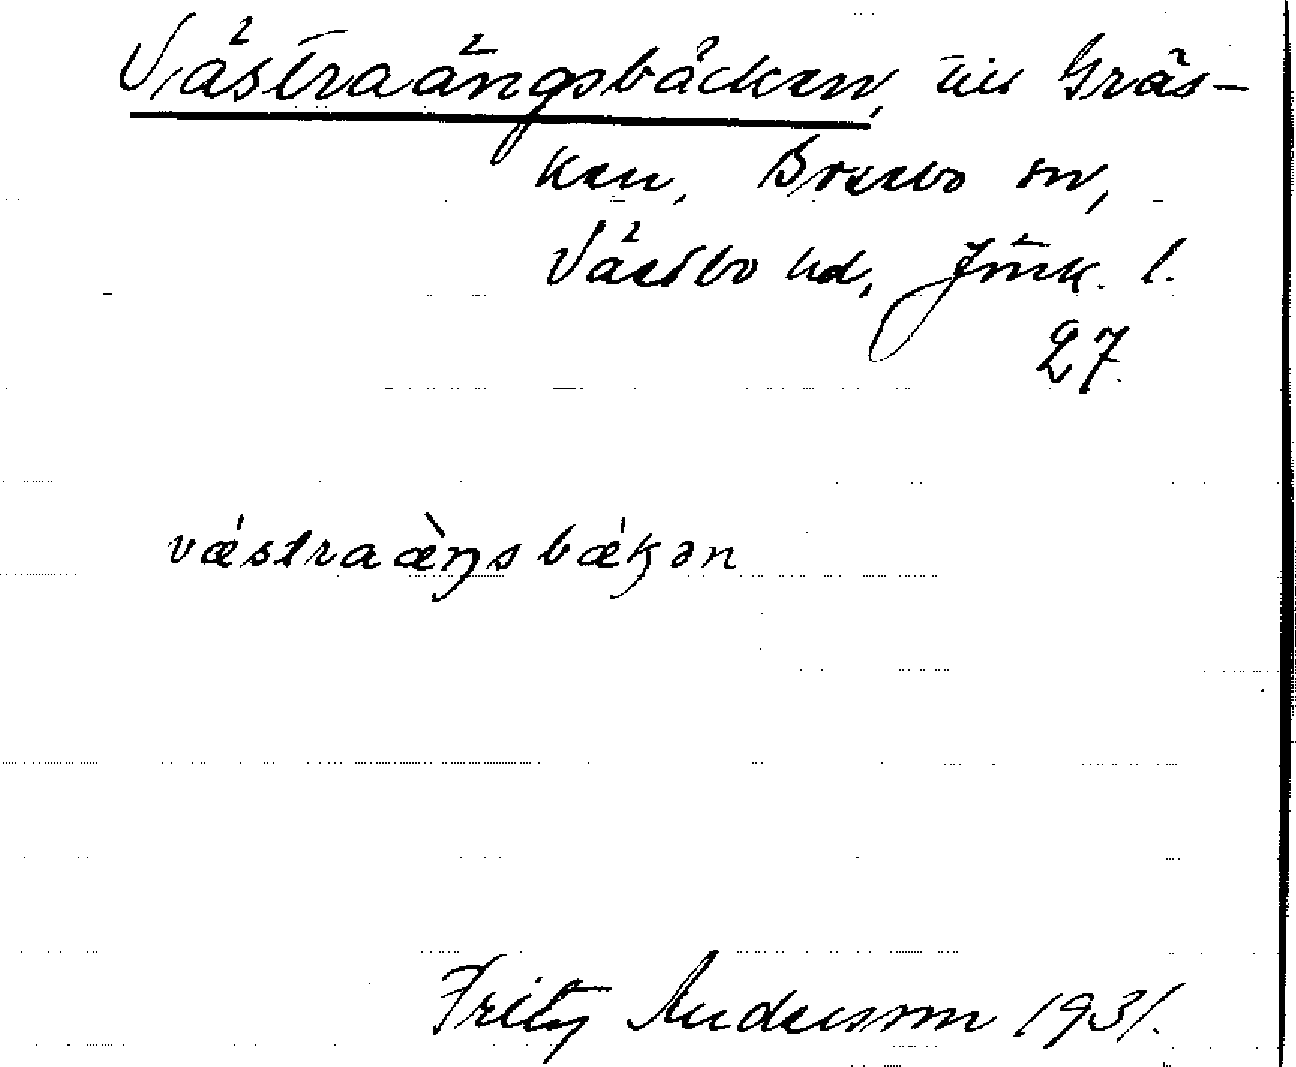 Västraängsbäcken, till Gräs-
ken, Bosebo sn,
Västbo hd, Jönk. l.
27.
vǽstraæ̀ŋsbǽkən
Fritz Andersson 1931.